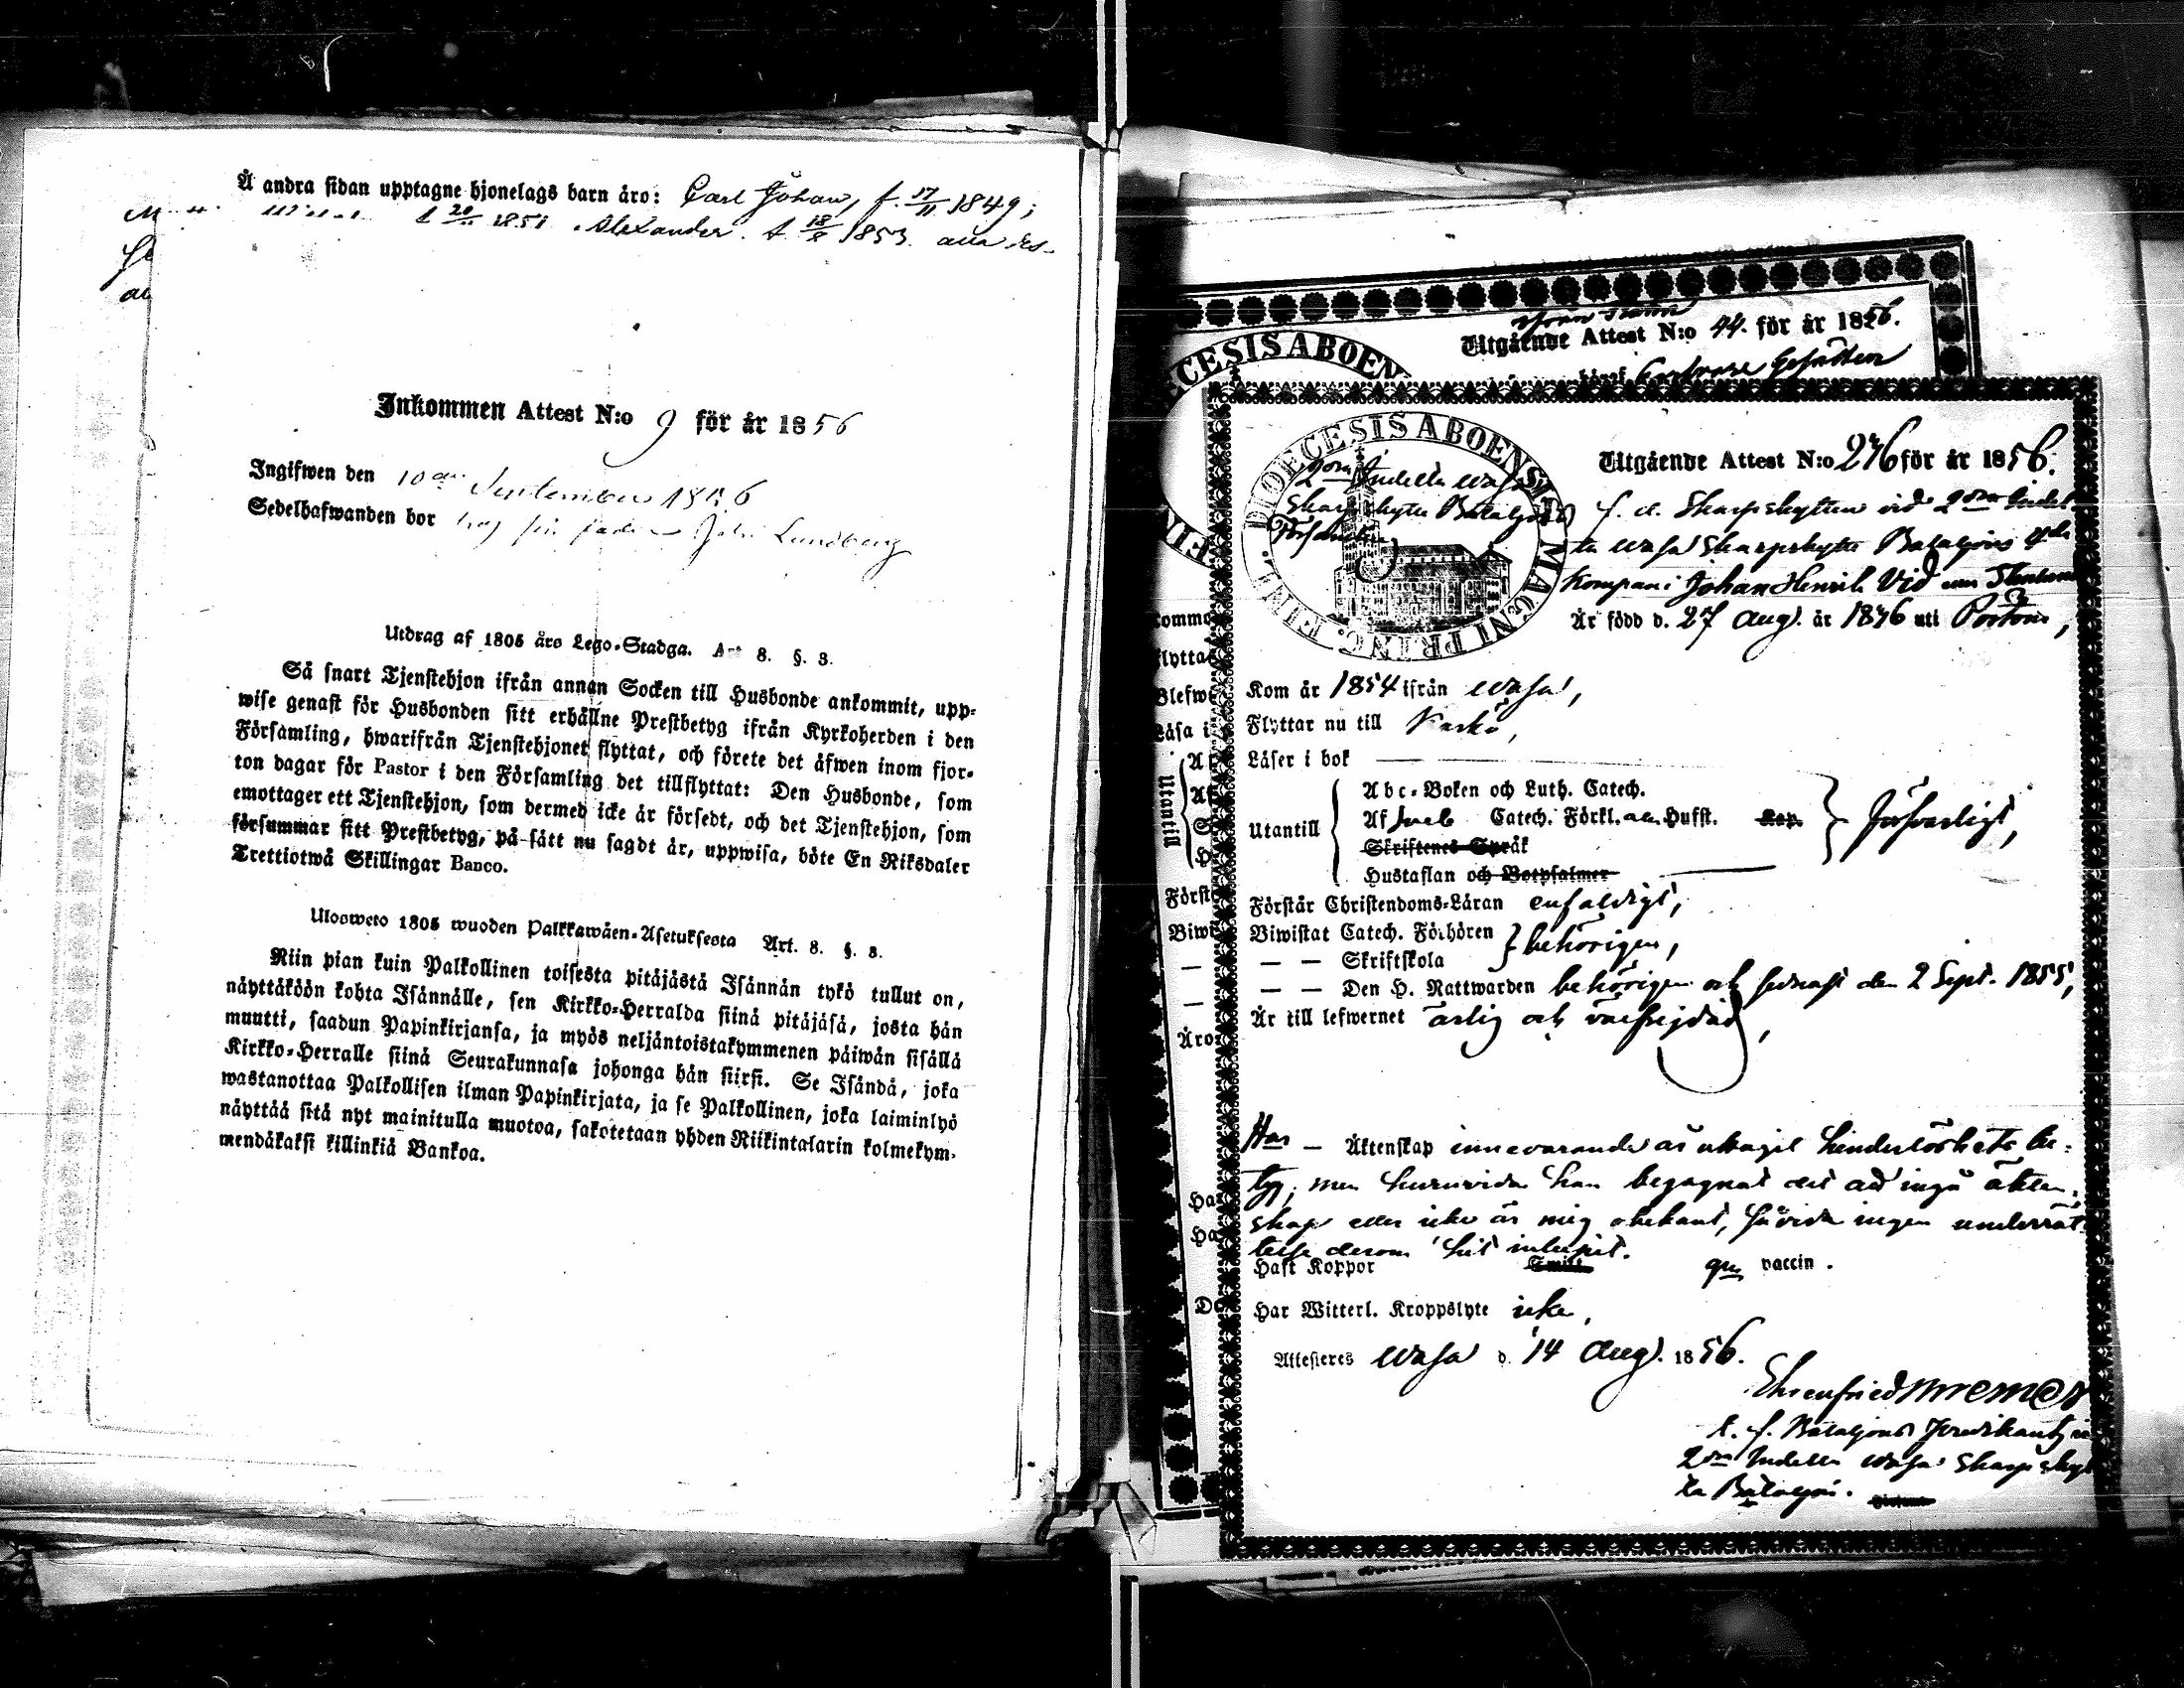 Å andra sidan upptagne hjonelags barn äro: Carl Johan, f. 17/11 1849;
1851. Alexander. f. 18/8 1853.
Inkommen Attest N:o 9 för år 1856
Ingifwen den 10de September 1856
Sedelhafwanden bor hos sin fader Joh. Lundberg
Utdrag af 1805 års Lego-Stadga. Art 8. §. 3.
Så snart Tjenstehjon ifrån annan Socken till Husbonde ankommit, upp-
wise genast för Husbonden sitt erhållne Prestbetyg ifrån Kyrkoherden i den
Församling, hwarifrån Tjenstehjonet flyttat, och förete det äfwen inom fjor-
ton dagar för Pastor i den Församling det tillflyttat: Den Husbonde, som
emottager ett Tjenstehjon, som dermed icke är försedt, och det Tjenstehjon, som
försummar sitt Prestbetyg, på sätt nu sagdt är, uppwisa, böte En Riksdaler
Trettiotwå Skillingar Banco.
Ulosweto 1805 wuoden Palkkawäen-Asetuksesta Art. 8. §. 3.
Niin pian kuin Palkollinen toisesta pitäjästä Isännän tykö tullut on,
näyttäköön kohta Isännälle, sen Kirkko-Herralda siinä pitäjäsä, josta hän
muutti, saadun Papinkirjansa, ja myös neljäntoistakymmenen päiwän sisällä
Kirkko-Herralle siinä Seurakunnasa johonga hän siirsi. Se Isändä, joka
wastanottaa Palkollisen ilman Papinkirjata, ja se Palkollinen, joka laiminlyö
näyttää sitä nyt mainitulla muotoa, sakotetaan yhden Riikintalarin kolmekym-
mendäkaksi killinkiä Bankoa.
CESIS ABOEN
Utgående Attest N:o 44. för år 1856.
DIOECESIS ABOENSIS MAGNI PRINC. FINL.
2dra Indelta Wasa
Skarpskytte Bataljons
Församling
Utgående Attest N:o 276 för år 1856.
f. d. Skarpskytten vid 2dra Indel
ta Wasa Skarpskytte Bataljons 4de
Kompani Johan Henrik Vid
Är född d. 27 Aug. år 1836 uti Pörtom,
Kom år 1854 ifrån Wasa,
Flyttar nu till
Läser i bok
Utantill
Abc-Boken och Luth. Catech.
Af Sveb Catech. Förkl. Hufst.
Skriftenes Språk
Hustaflan och Botpsalmer
försvarligt,
Förstår Christendoms-Läran enfaldigt,
Biwistat Catech. Förhören
— — Skriftskola
behörigen,
— — Den H. Nattwarden behörigen och senast den 2 Sept. 1855,
Är till lefwernet ärlig och välfrejdad,
Har — Äktenskap innevarande år uttagit hinderlöshets be-
tyg, men huruvida han begagnat det att ingå äkten-
skap eller icke är mig obekant, så vida ingen underrät
telse derom hit inlupit.
Haft Koppor gm vaccin.
Har Witterl. Kroppslyte icke,
Attesteres Wasa d. 14 Aug. 1856.
Ehrenfried
t. f. Bataljons Predikant vid
2dra Indelta Wasa Skarpskyt
te Bataljon.